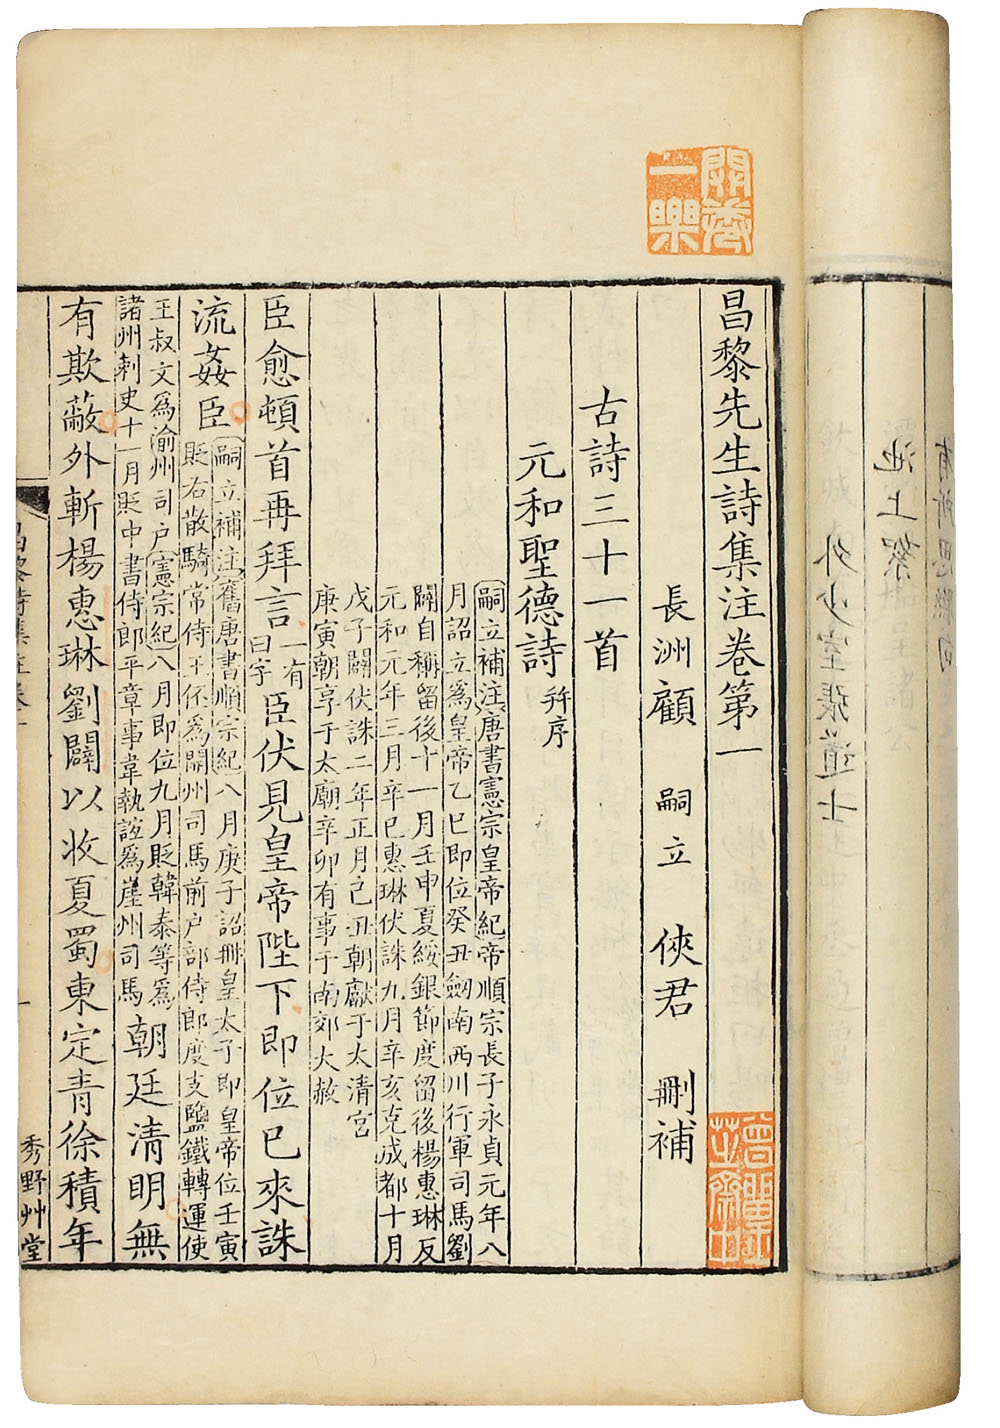 有所思聯句
池上絮
開卷一樂
昌黎先生詩集注卷第一
長洲顧 嗣立 俠君 刪補
古詩三十一首
元和聖德詩 并序
嗣立補注唐書憲宗皇帝紀帝順宗長子永貞元年八
月詔立爲皇帝乙巳即位癸丑劔南西川行軍司馬劉
闢自稱留後十一月壬申夏綏銀節度留後楊惠琳反
元和元年三月辛巳惠琳伏誅九月辛亥克成都十月
戊子闢伏誅二年正月己丑朝獻于太清宮
庚寅朝享于太廟辛卯有事于南郊大赦
臣愈頓首再拜言一有曰字臣伏見皇帝陛下即位已來誅
流姦臣
嗣立補注舊唐書順宗紀八月庚子詔冊皇太子即皇帝位壬寅
貶右散騎常侍王伾爲開州司馬前户部侍郎度支鹽鐵轉運使
王叔文爲渝州司户憲宗紀八月即位九月貶韓泰等爲
諸州刺史十一月貶中書侍郎平章事韋執誼爲崖州司馬
朝廷清明無
有欺蔽外斬楊惠琳劉闢以收夏蜀東定青徐積年
昌黎詩集注卷一
一
秀野艸堂